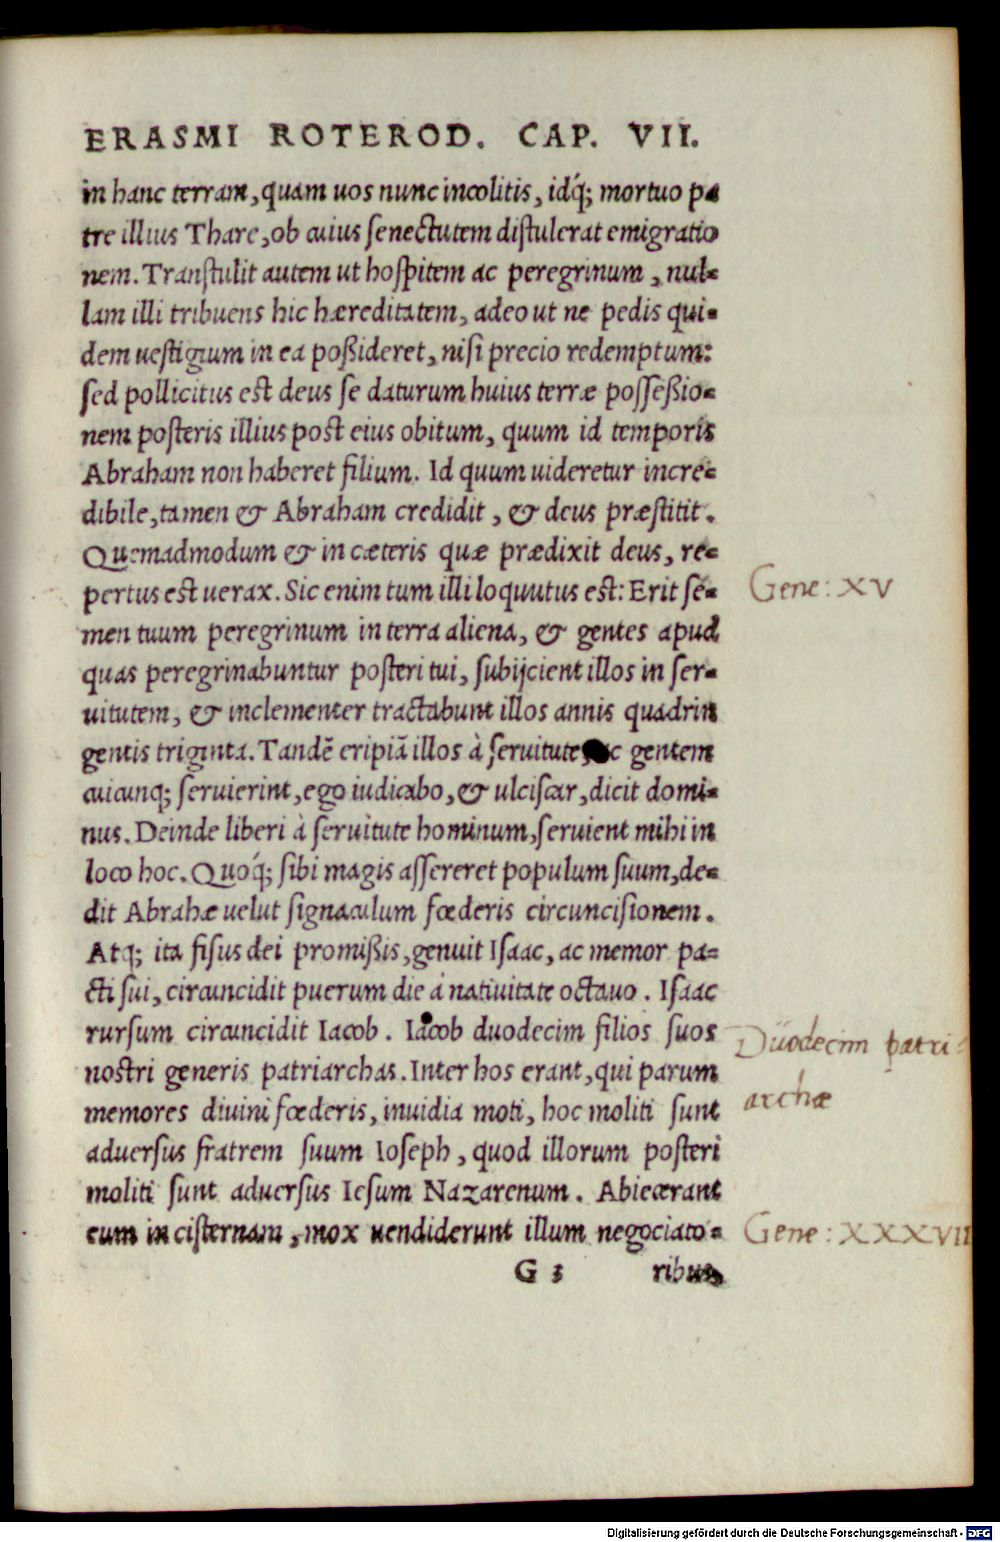 ERASMI ROTEROD. CAP. VII.
in hanc terram, quam uos nunc incolitis, idq́; mortuo pa
tre illius Thare, ob cuius ſenectutem diſtulerat emigratio
nem. Tranſtulit autem ut hoſpitem ac peregrinum, nul-
lam illi tribuens hic hæreditatem, adeo ut ne pedis qui-
dem ueſtigium in ea poßideret, niſi precio redemptum:
ſed pollicitus est deus ſe daturum huius terræ poſſeßio-
nem poſteris illius post eius obitum, quum id temporis
Abraham non haberet filium. Id quum uideretur incre-
dibile, tamen & Abraham credidit, & deus præſtitit.
Quemadmodum & in cæteris quæ prædixit deus, re-
pertus est uerax. Sic enim tum illi loquutus est: Erit ſe-
men tuum peregrinum in terra aliena, & gentes apud
quas peregrinabuntur poſteri tui, ſubijcient illos in ſer-
uitutem, & inclementer tractabunt illos annis quadrin
gentis triginta. Tandē eripiā illos à ſeruitute, ac gentem
cuicunq; ſeruierint, ego iudicabo, & ulciſcar, dicit domi-
nus. Deinde liberi à ſeruitute hominum, ſeruient mihi in
loco hoc. Quoq́; ſibi magis aſſereret populum ſuum, de-
dit Abrahæ uelut ſignaculum fœderis circunciſionem.
Atq; ita fiſus dei promißis, genuit Iſaac, ac memor pa-
cti ſui, circuncidit puerum die à natiuitate octauo. Iſaac
rurſum circuncidit Iacob. Iacob duodecim filios ſuos
nostri generis patriarchas. Inter hos erant, qui parum
memores diuini fœderis, inuidia moti, hoc moliti ſunt
aduerſus fratrem ſuum Ioſeph, quod illorum poſteri
moliti ſunt aduerſus Ieſum Nazarenum. Abiecerant
eum in ciſternam, mox uendiderunt illum negociato-
G 3 ribus
Gene: XV
Duodecim patri-
archæ
Gene: XXXVII
Digitalisierung gefördert durch die Deutsche Forschungsgemeinschaft - DFG